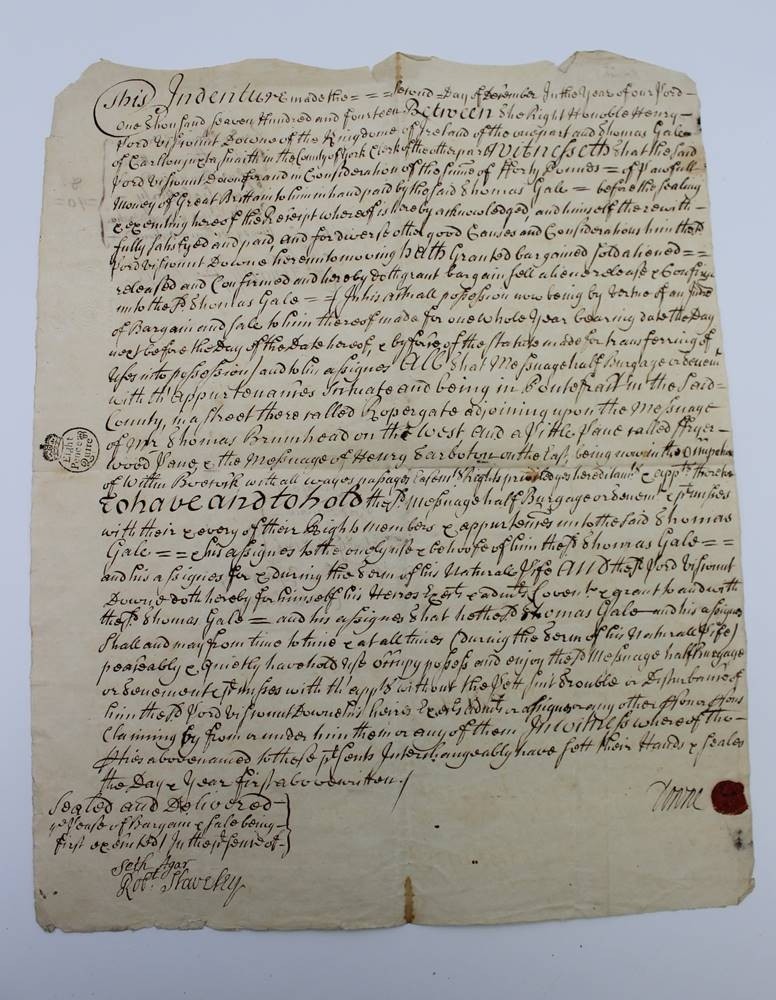 This Indenture made the = = = Second = Day of December In the Year of our Lord –
One Thousand Seaven Hundred and fourteen Between The Right Honoble Henry –
Lord Viscount Downe of the Kingdome of Ireland of the one part and Thomas Gale
of Carlton juxta Snaith in the County of York Clerk of the other part Witnesseth that the said
Lord Viscount Downe for and in Consideration of the summe of fforty Pounds = of Lawfull
Money of Great Brittain to him in hand paid by the said Thomas Gale = before the Sealing
& executing hereof the Receipt whereof is hereby acknowledged, and himself therewith –
fully satisfyed and paid, and for diverse other good Causes and Considerations him the sd
Lord Viscount Downe hereunto moving hath Granted bargained sold aliened = =
released and Confirmed and hereby doth grant bargain sell aliene release & Confirme
unto the sd Thomas Gale = = In his actuall possession now being by vertue of an Indre
of Bargain and Sale to him thereof made for one whole Year bearing date the Day
next before the Day of the Date hereof, & by force of the statute made for transferring of
Uses into possession) and to his assignes All that Messuage half Burgage or tenemt
with th' appurtenances Scituate and being in Pontefract in the Said –
County, in a street there called Ropergate adjoining upon the Messuage
of Mr Thomas Brumhead on the West and a Little Lane called ffryer –
wood Lane, & the Messuage of Henry on the East, being now in the
of Willm with all wayes passages Easemts Rights priviledges hereditamts & appts thereto
To have and to hold the sd Messuage half Burgage or tenemt & premisses
with their & every of their Rights Members & appurtences unto the said Thomas
Gale = = & his assignes to the onely use & behoofe of him the sd Thomas Gale = =
and his assignes for & during the Term of his Naturall Life And the sd Lord Viscount
Downe doth hereby for himself his Heires Exectrs & admrs Covent & grant to and with
the sd Thomas Gale = and his assignes that he the sd Thomas Gale and his assignes
Shall and may from time to time & at all times (during the Term of his Naturall Life)
peaceably & quietly have hold use occupy possess and enjoy the sd Messuage half Burgage
or tenement & premisses with th' appts without the Lett Suit trouble or Disturbance of
him the sd Lord Viscount Downe his heires Exectrs Admrs or assignes or any other
Claiming by from or under him them or any of them In witness whereof the –
pties abovenamed to these psents Interchangeably have sett their Hands & seales
the Day & Year first abovewritten./
Downe
Sealed and Delivered –
ye Lease of Bargain & Sale being –
first executed) In the psence of –
Seth Agar
Robt Staveley
Eight
Pence
Quire